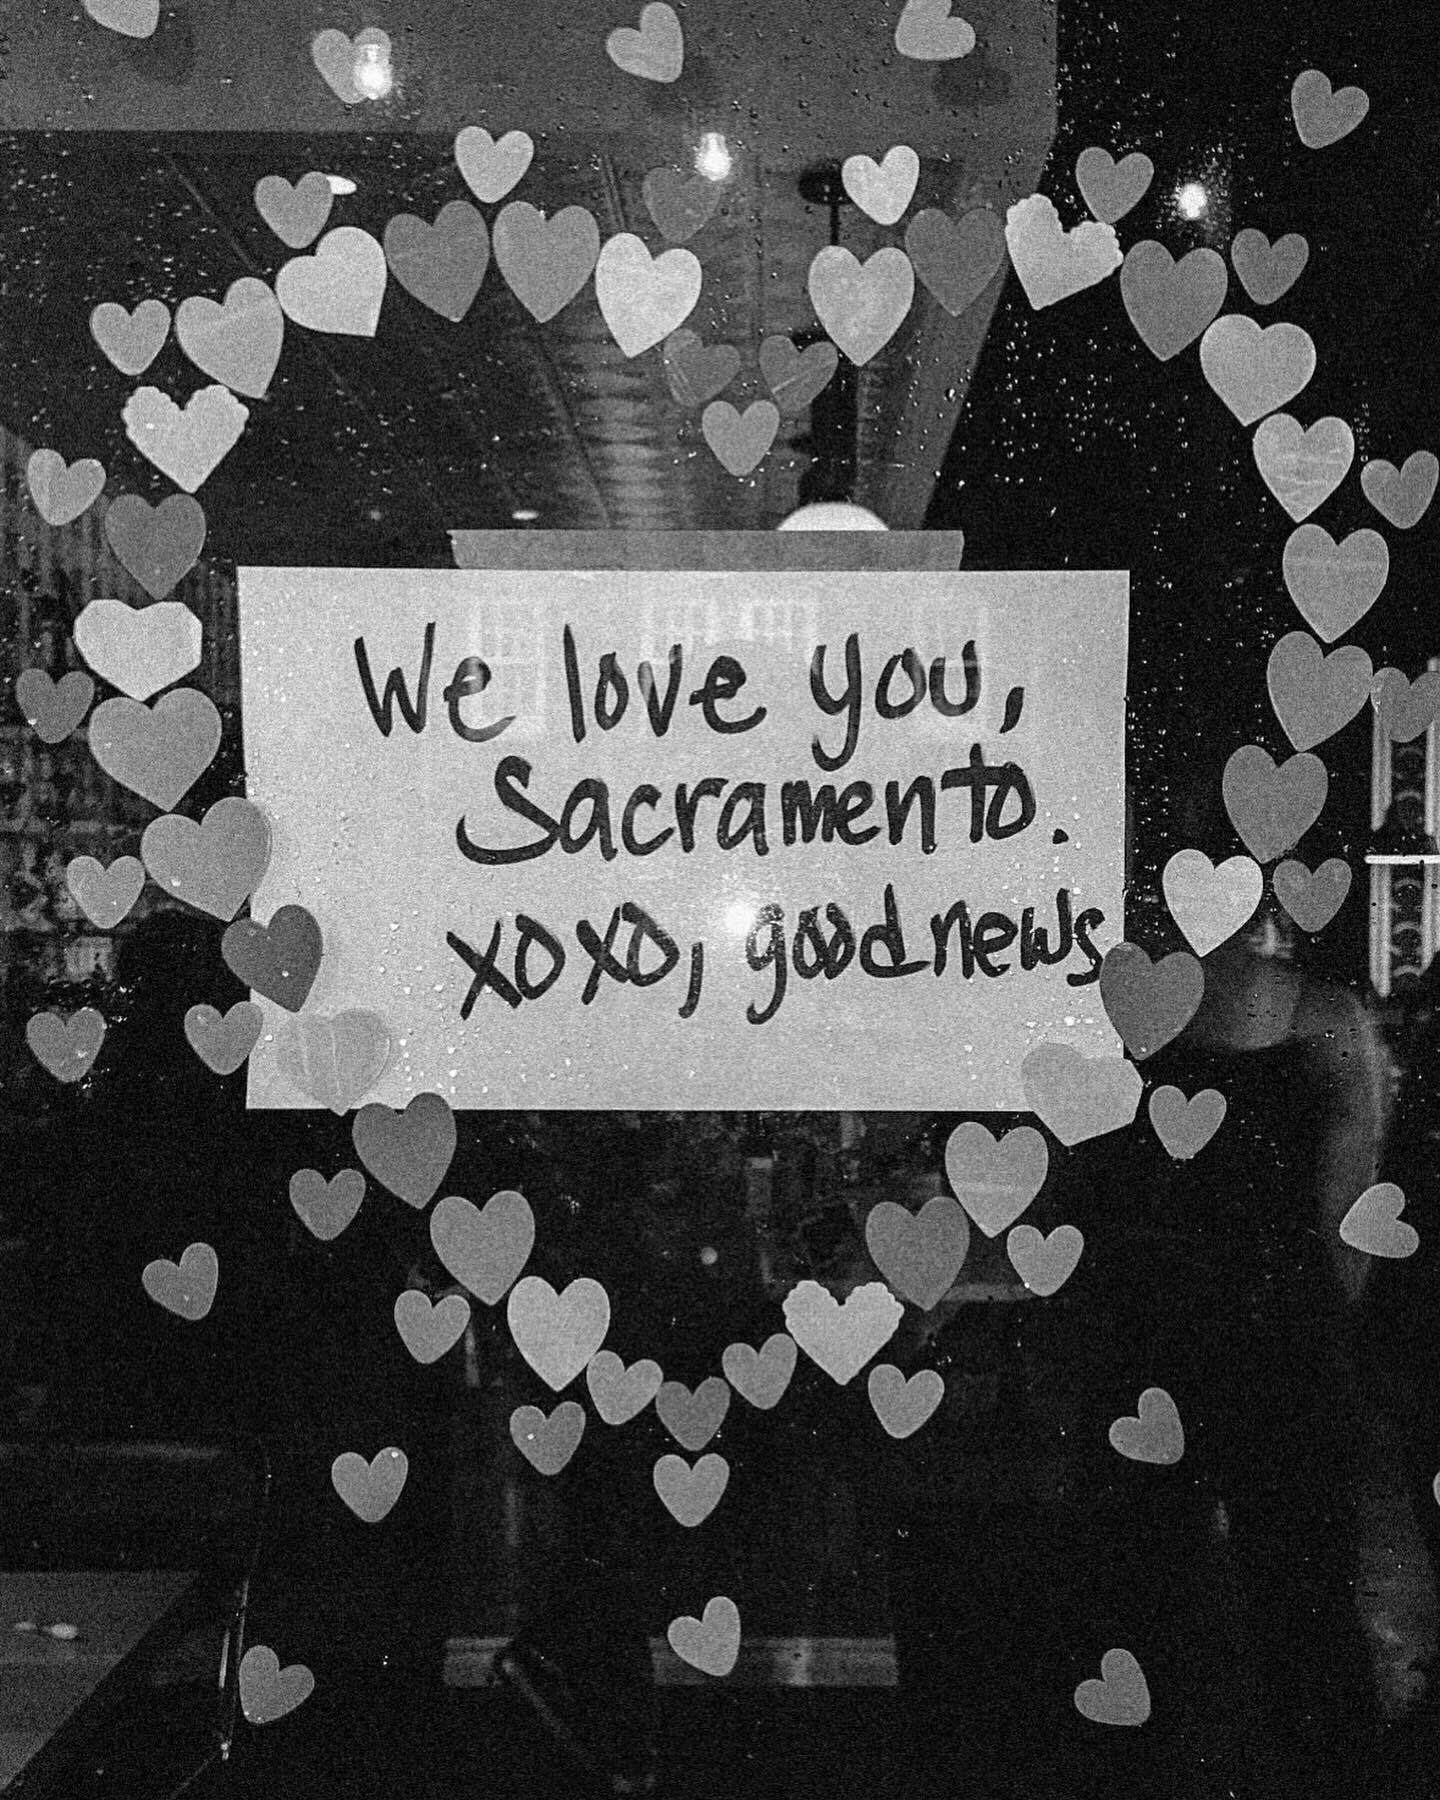 We love you,
Sacramento.
xoxo, goodnews